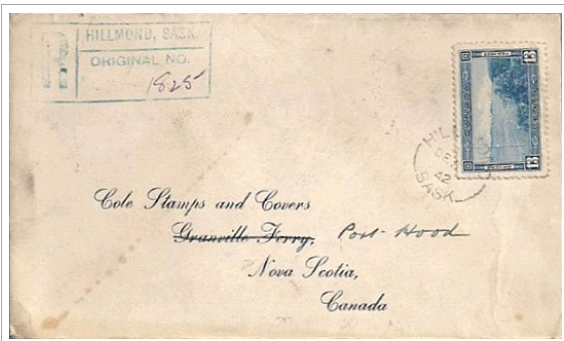 HILLMOND, SASK.
ORIGINAL NO.
1825
13 13
HILL
DE
42
SASK
Cole Stamps and Covers
Granville Ferry, Port Hood
Nova Scotia,
Canada